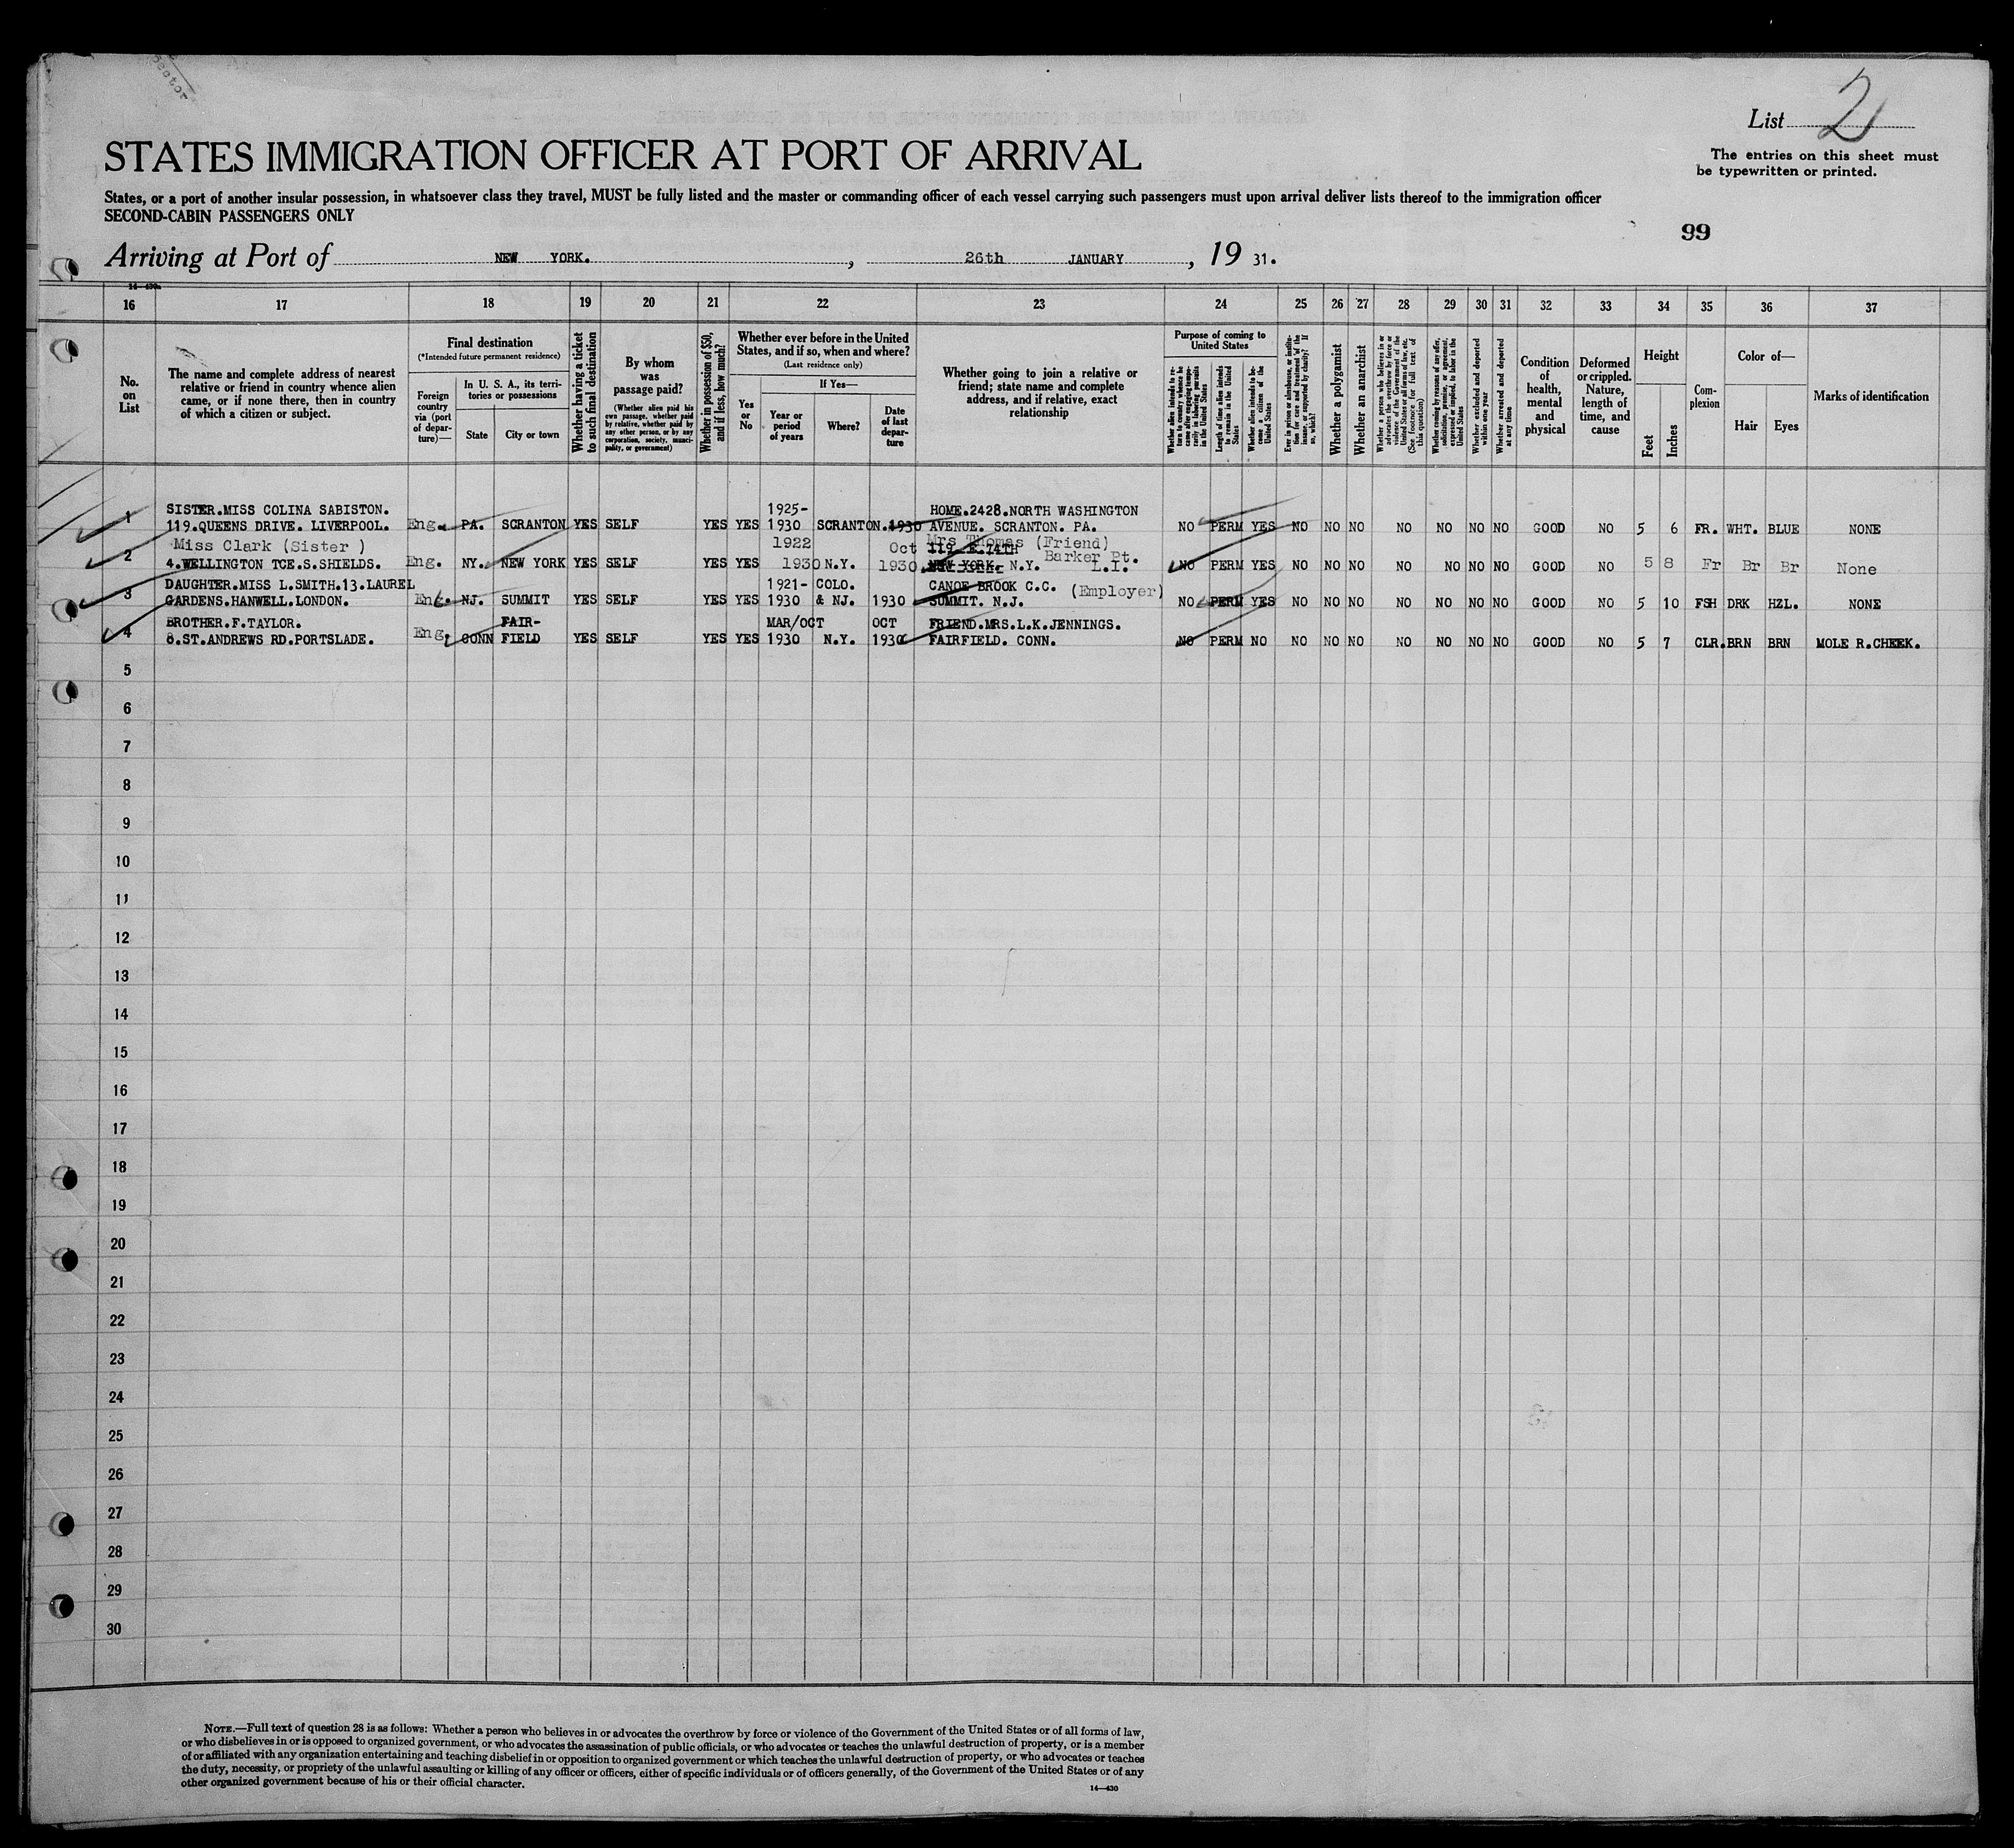 List 2
The entries on this sheet must
be typewritten or printed.
STATES IMMIGRATION OFFICER AT PORT OF ARRIVAL
States, or a port of another insular possession, in whatsoever class they travel, MUST be fully listed and the master or commanding officer of each vessel carrying such passengers must upon arrival deliver lists thereof to the immigration officer
SECOND-CABIN PASSENGERS ONLY
99
Arriving at Port of NEW YORK. , 26th JANUARY , 19 31.
16 17 18 19 20 21 22 23 24 25 26 27 28 29 30 31 32 33 34 35 36 37
No.
on
List
The name and complete address of nearest
relative or friend in country whence alien
came, or if none there, then in country
of which a citizen or subject.
Final destination
(*Intended future permanent residence)
Foreign
country
via (port
of depar-
ture)—
In U. S. A., its terri-
tories or possessions
State
City or town
Whether having a ticket
to such final destination
By whom
was
passage paid?
(Whether alien paid his
own passage, whether paid
by relative, whether paid by
any other person, or by any
corporation, society, munici-
pality, or government)
Whether in possession of $50,
and if less, how much?
Whether ever before in the United
States, and if so, when and where?
(Last residence only)
Yes
or
No
If Yes—
Year or
period
of years
Where?
Date
of last
depar-
ture
Whether going to join a relative or
friend; state name and complete
address, and if relative, exact
relationship
Purpose of coming to
United States
Whether alien intends to re-
turn to country whence he
came after engaging tempo-
rarily in laboring pursuits
in the United States
Length of time alien intends
to remain in the United
States
Whether alien intends to be-
come a citizen of the
United States
Ever in prison or almshouse, or institu-
tion for care and treatment of the
insane, or supported by charity? If
so, which?
Whether a polygamist
Whether an anarchist
Whether a person who believes in or
advocates the overthrow by force or
violence of the Government of the
United States or all forms of law, etc.
(See footnote for full text of
this question)
Whether coming by reasons of any offer,
solicitation, promise, or agreement,
expressed or implied, to labor in the
United States
Whether excluded and deported
within one year
Whether arrested and deported
at any time
Condition
of
health,
mental
and
physical
Deformed
or crippled.
Nature,
length of
time, and
cause
Height
Feet
Inches
Com-
plexion
Color of—
Hair
Eyes
Marks of identification
SISTER.MISS COLINA SABISTON. 1925- HOME.2428.NORTH WASHINGTON
1 119.QUEENS DRIVE. LIVERPOOL. Eng. PA. SCRANTON YES SELF YES YES 1930 SCRANTON. 1930 AVENUE. SCRANTON. PA. NO PERM YES NO NO NO NO NO NO NO GOOD NO 5 6 FR. WHT. BLUE NONE
Miss Clark (Sister ) 1922 Oct Mrs Thomas (Friend)
119. E.74TH Barker Pt.
2 4.WELLINGTON TCE.S.SHIELDS. Eng. NY. NEW YORK YES SELF YES YES 1930 N.Y. 1930 NEW YORK. N.Y. L.I. NO PERM YES NO NO NO NO NO NO NO GOOD NO 5 8 Fr Br Br None
DAUGHTER.MISS L.SMITH.13.LAUREL 1921- COLO. CANOE BROOK C.C. (Employer)
3 GARDENS.HANWELL.LONDON. Eng. NJ. SUMMIT YES SELF YES YES 1930 & NJ. 1930 SUMMIT. N.J. NO PERM YES NO NO NO NO NO NO NO GOOD NO 5 10 FSH DRK HZL. NONE
BROTHER.F.TAYLOR. FAIR- MAR/OCT OCT FRIEND.MRS.L.K.JENNINGS.
4 8.ST.ANDREWS RD.PORTSLADE. Eng. CONN FIELD YES SELF YES YES 1930 N.Y. 1930 FAIRFIELD. CONN. NO PERM NO NO NO NO NO NO NO NO GOOD NO 5 7 CLR. BRN BRN MOLE R.CHEEK.
5
6
7
8
9
10
11
12
13
14
15
16
17
18
19
20
21
22
23
24
25
26
27
28
29
30
NOTE.—Full text of question 28 is as follows: Whether a person who believes in or advocates the overthrow by force or violence of the Government of the United States or of all forms of law,
or who disbelieves in or is opposed to organized government, or who advocates the assassination of public officials, or who advocates or teaches the unlawful destruction of property, or is a member
of or affiliated with any organization entertaining and teaching disbelief in or opposition to organized government or which teaches the unlawful destruction of property, or who advocates or teaches
the duty, necessity, or propriety of the unlawful assaulting or killing of any officer or officers, either of specific individuals or of officers generally, of the Government of the United States or of any
other organized government because of his or their official character.
14—430